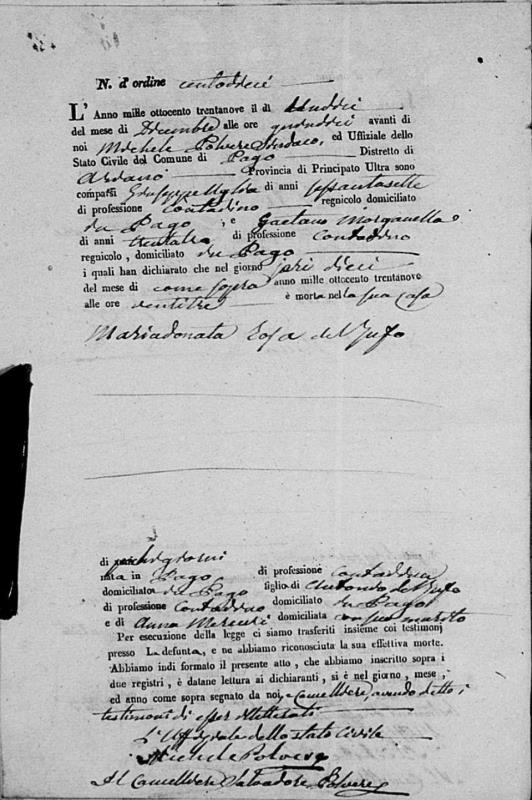 N. d'ordine centotredeci
L'Anno mille ottocento trentanove il dì Undeci
del mese di Decembre alle ore quindeci avanti di
noi Michele Polvere Sindaco, ed Uffiziale dello
Stato Civile del Comune di Pago Distretto di
Ariano Provincia di Principato Ultra sono
comparsi Giuseppe di anni sessantasette
di professione Contadino regnicolo domiciliato
in Pago, e Gaetano Morganella
di anni di professione Contadino
regnicolo, domiciliato in Pago
i quali han dichiarato che nel giorno jeri dieci
del mese di come sopra anno mille ottocento trentanove
alle ore ventitre è morta nella sua casa
Mariadonata Rosa del
di giorni
nata in Pago di professione Contadina
domiciliato in Pago figlio di del
di professione Contadino domiciliato in Pago
e di Anna Mercuri domiciliata con suo marito
Per esecuzione della legge ci siamo trasferiti insieme coi testimonj
presso La defunta, e ne abbiamo riconosciuta la sua effettiva morte.
Abbiamo indi formato il presente atto, che abbiamo inscritto sopra i
due registri, è datane lettura ai dichiaranti, si è nel giorno, mese,
ed anno come sopra segnato da noi, e Cancelliere, avendo detto i
testimoni di esser illetterato
L'Uffiziale dello stato Civile
Michele Polvere
Il Cancelliere Salvadore Polvere